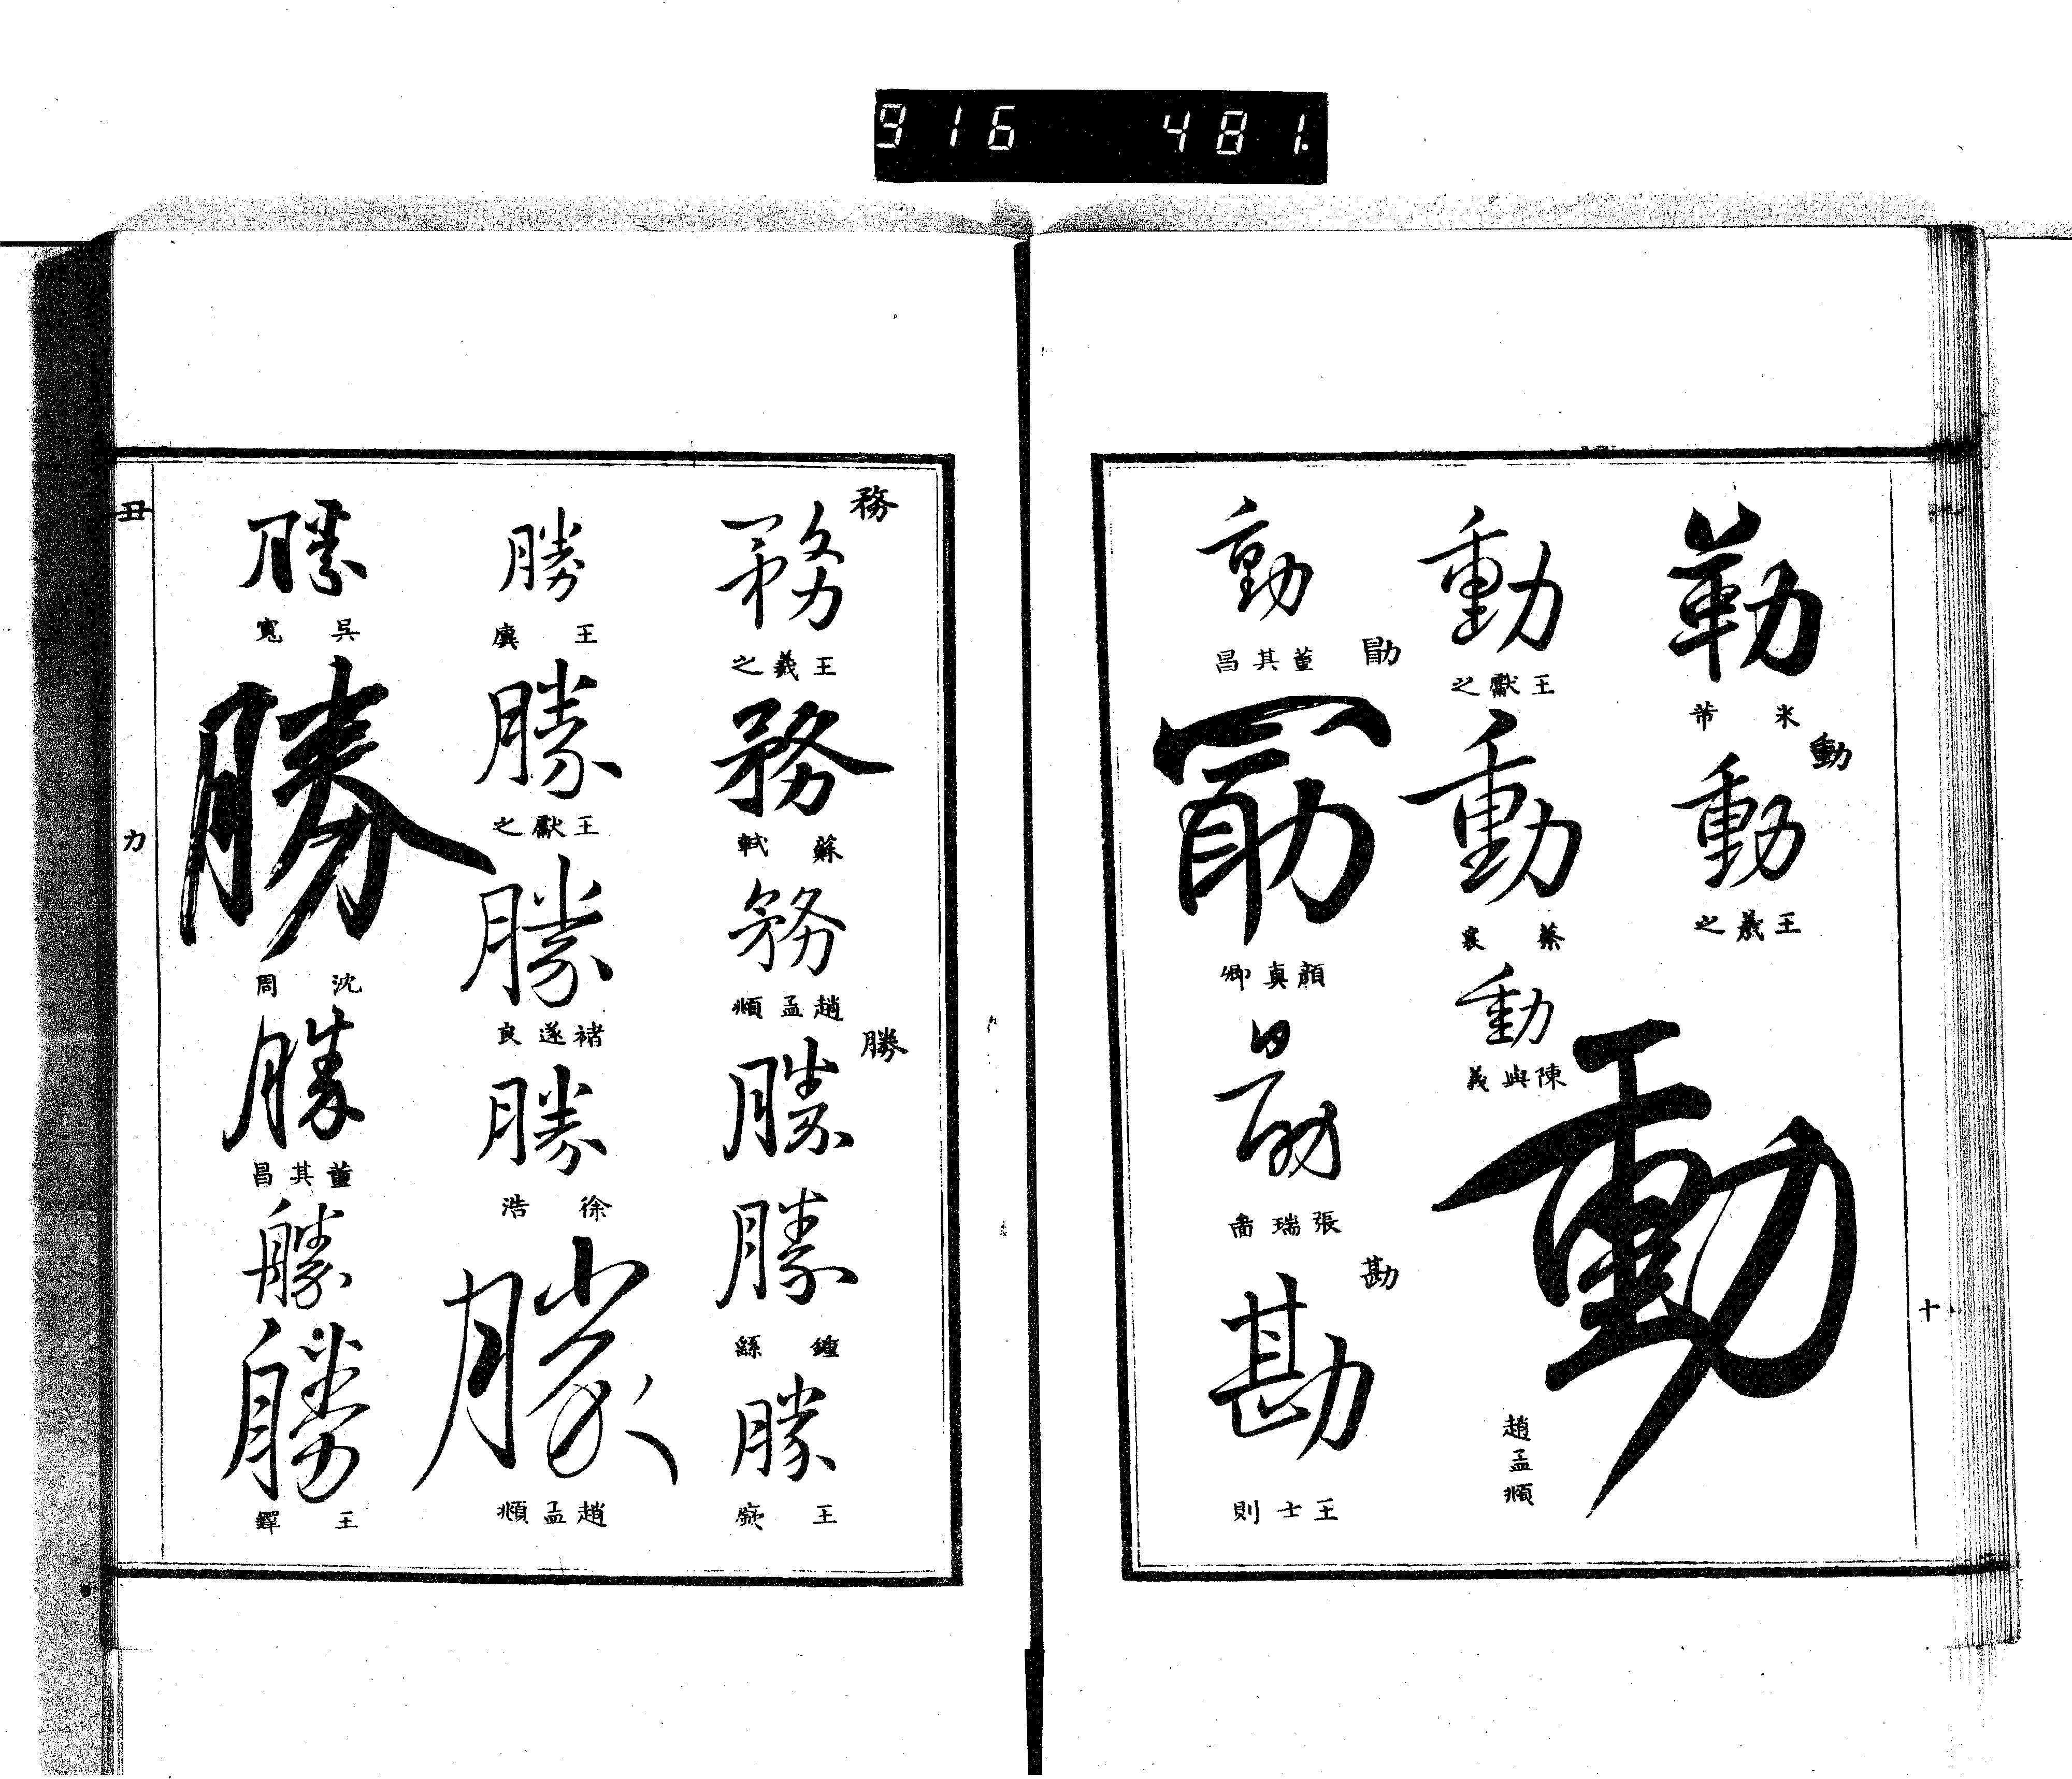 916 481.
勒
米芾
動
動
王羲之
動
趙孟頫
動
王獻之
動
蔡襄
動
陳與義
動
董其昌
勖
勖
顏真卿
勖
張瑞圖
勘
勘
王士則
十
務
務
王羲之
務
蘇軾
務
趙孟頫
勝
勝
勝
鍾繇
勝
王廙
勝
王廙
勝
王獻之
勝
褚遂良
勝
徐浩
勝
趙孟頫
勝
吳寬
勝
沈周
勝
董其昌
勝
勝
王鐸
丑
力